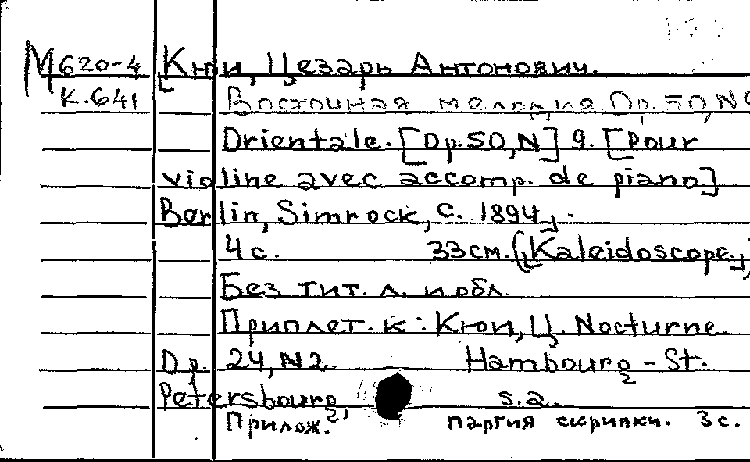 М620-4 Кюи, Цезарь Антонович.
К.641 Восточная мелодия. Op.50, N9
Orientale. [Op.50, N] 9. [Pour
violine avec accomp. de piano]
Berlin, Simrock, c. 1894.
4 с. 33см. („Kaleidoscope„)
Без тит. л. и обл.
Приплет. к: Кюи, Ц. Nocturne.
Op. 24, N2. Hambourg - St.
Petersbourg, s.a.
Прилож. партия скрипки. 3 с.